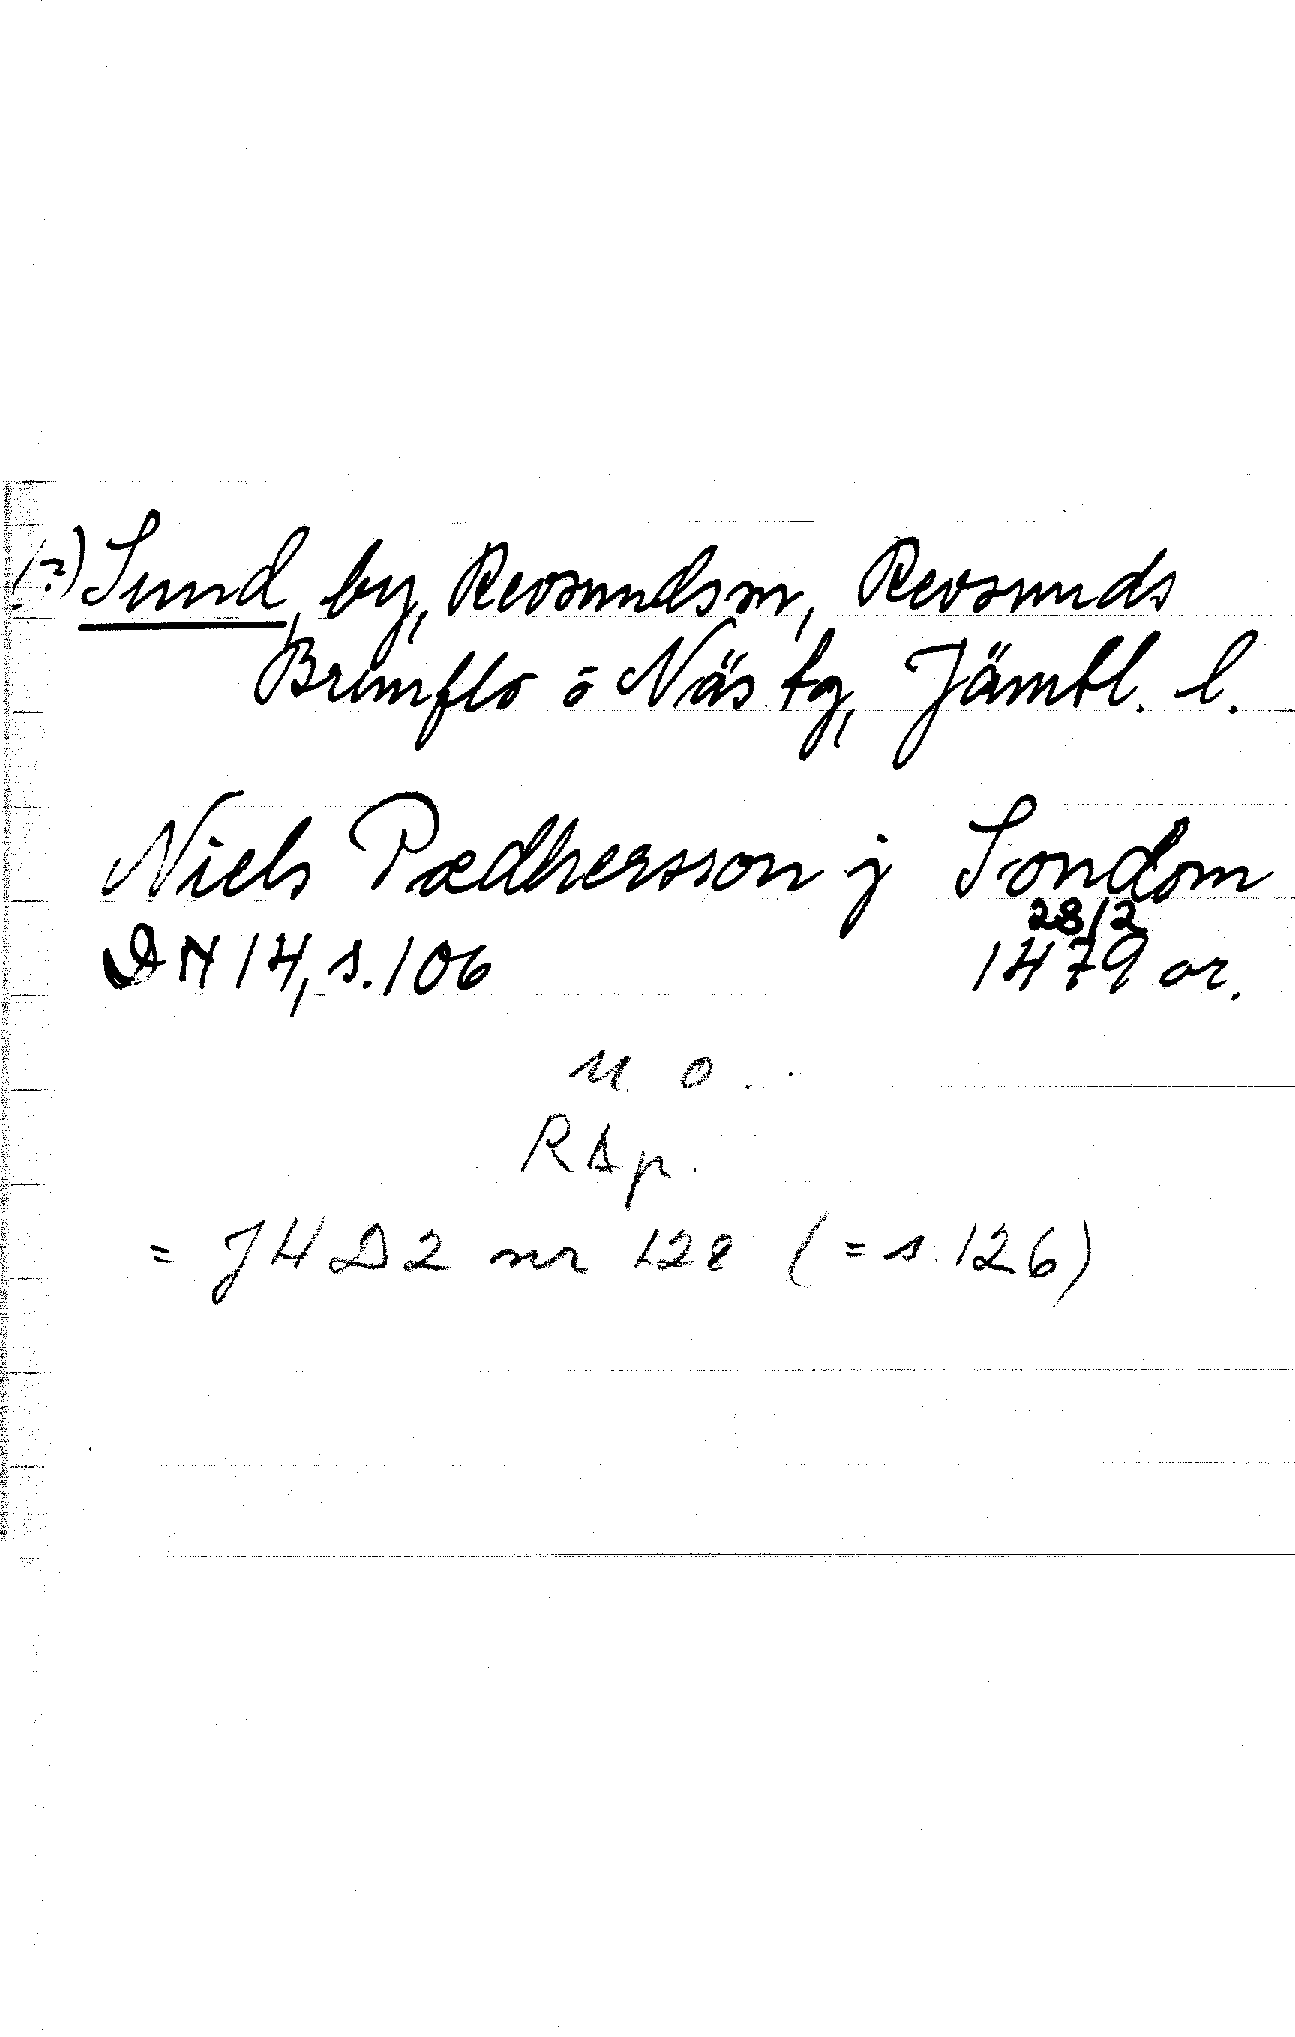 (?) Sund, by, Revsunds sn, Revsunds
Brunflo o Näs tg, Jämtl. l.
Niels Pædhersson j Sondom
28/2
DN 14, s. 106 1479 or.
u o.
RAp.
= JHD 2 nr 128 (= s. 126)